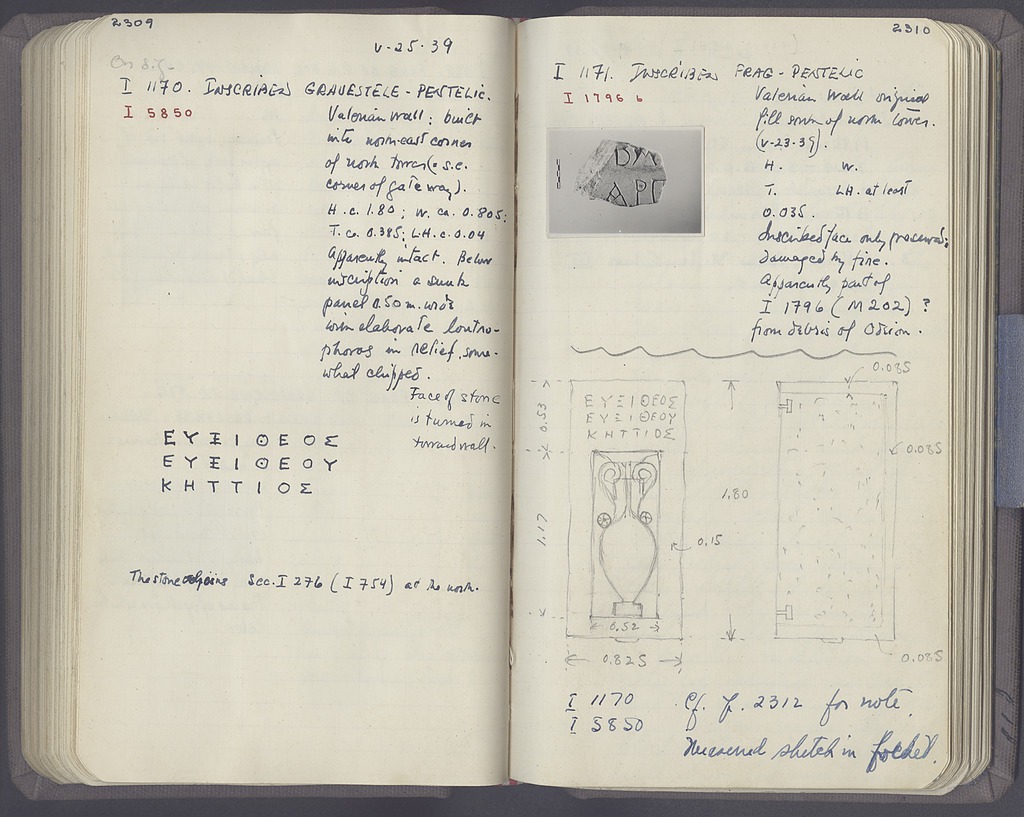 2309
V-25-39
On dig-
I 1170. INSCRIBED GRAVESTELE - PENTELIC.
I 5850
Valerian Wall; built
into north-east corner
of north tower (= s.e.
corner of gateway).
H. c. 1.80; W. ca. 0.805;
T. ca. 0.385; L.H. c. 0.04
Apparently intact. Below
inscription a sunk
panel 0.50 m. wide
with elaborate loutro-
phoros in relief, some-
what chipped.
Face of stone
is turned in
toward wall.
ΕΥΞΙΘΕΟΣ
ΕΥΞΙΘΕΟΥ
ΚΗΤΤΙΟΣ
The stone adjoins Sec. I 276 (I 754) at the north.
2310
I 1171. INSCRIBED FRAG - PENTELIC
I 1796 b
Valerian Wall original
fill south of north tower.
(V-23-39).
H. W.
T. LH. at least
0.035.
Inscribed face only preserved;
damaged by fire.
Apparently part of
I 1796 (M 202) ?
from debris of Odeion.
ΑΡΓ
0.085
ΕΥΞΙΘΕΟΣ
ΕΥΞΙΘΕΟΥ
ΚΗΤΤΙΟΣ
0.53
0.085
1.80
1.17
0.15
0.52
0.825
0.085
I 1170 Cf. p. 2312 for note.
I 5850
Measured sketch in folder.